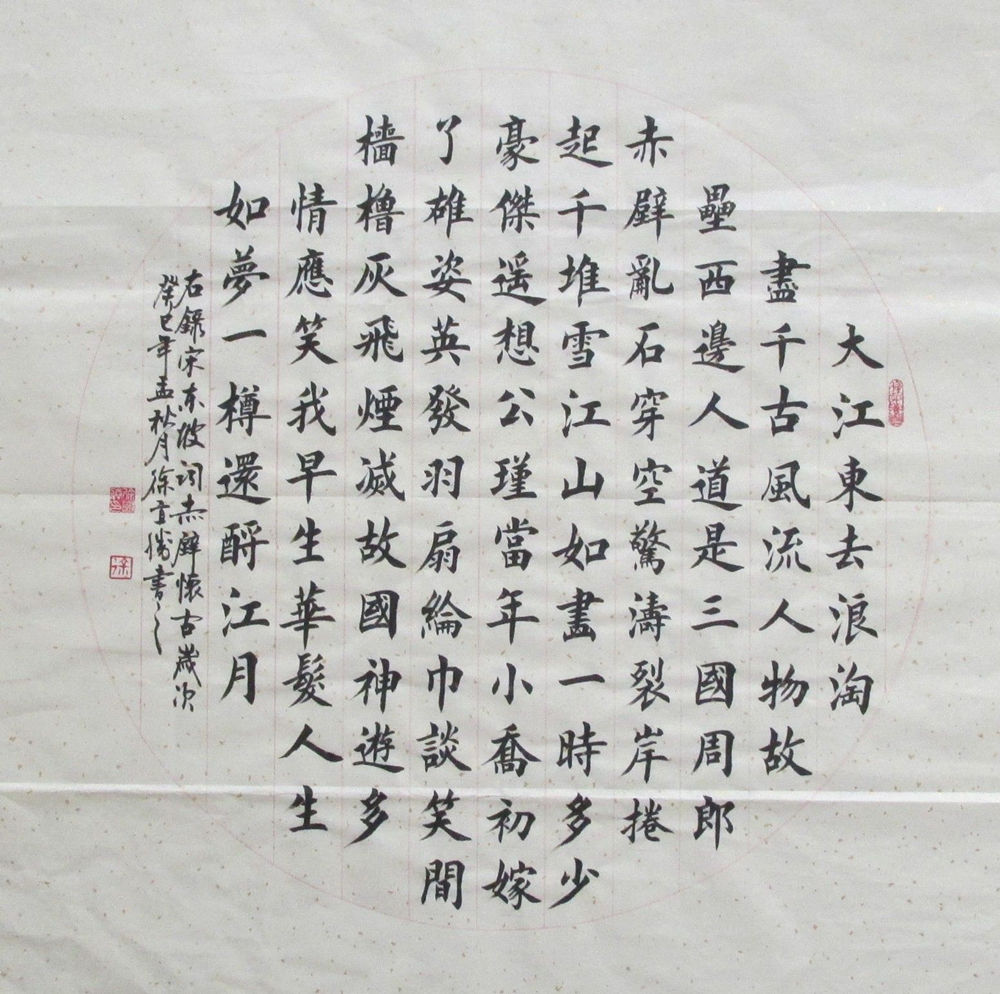 大江東去浪淘
盡千古風流人物故
壘西邊人道是三國周郎
赤壁亂石穿空驚濤裂岸捲
起千堆雪江山如畫一時多少
豪傑遥想公瑾當年小喬初嫁
了雄姿英發羽扇綸巾談笑間
檣櫓灰飛煙滅故國神遊多
情應笑我早生華髮人生
如夢一樽還酹江月
右錄宋東坡詞赤壁懷古歲次
癸巳年孟秋月徐書之